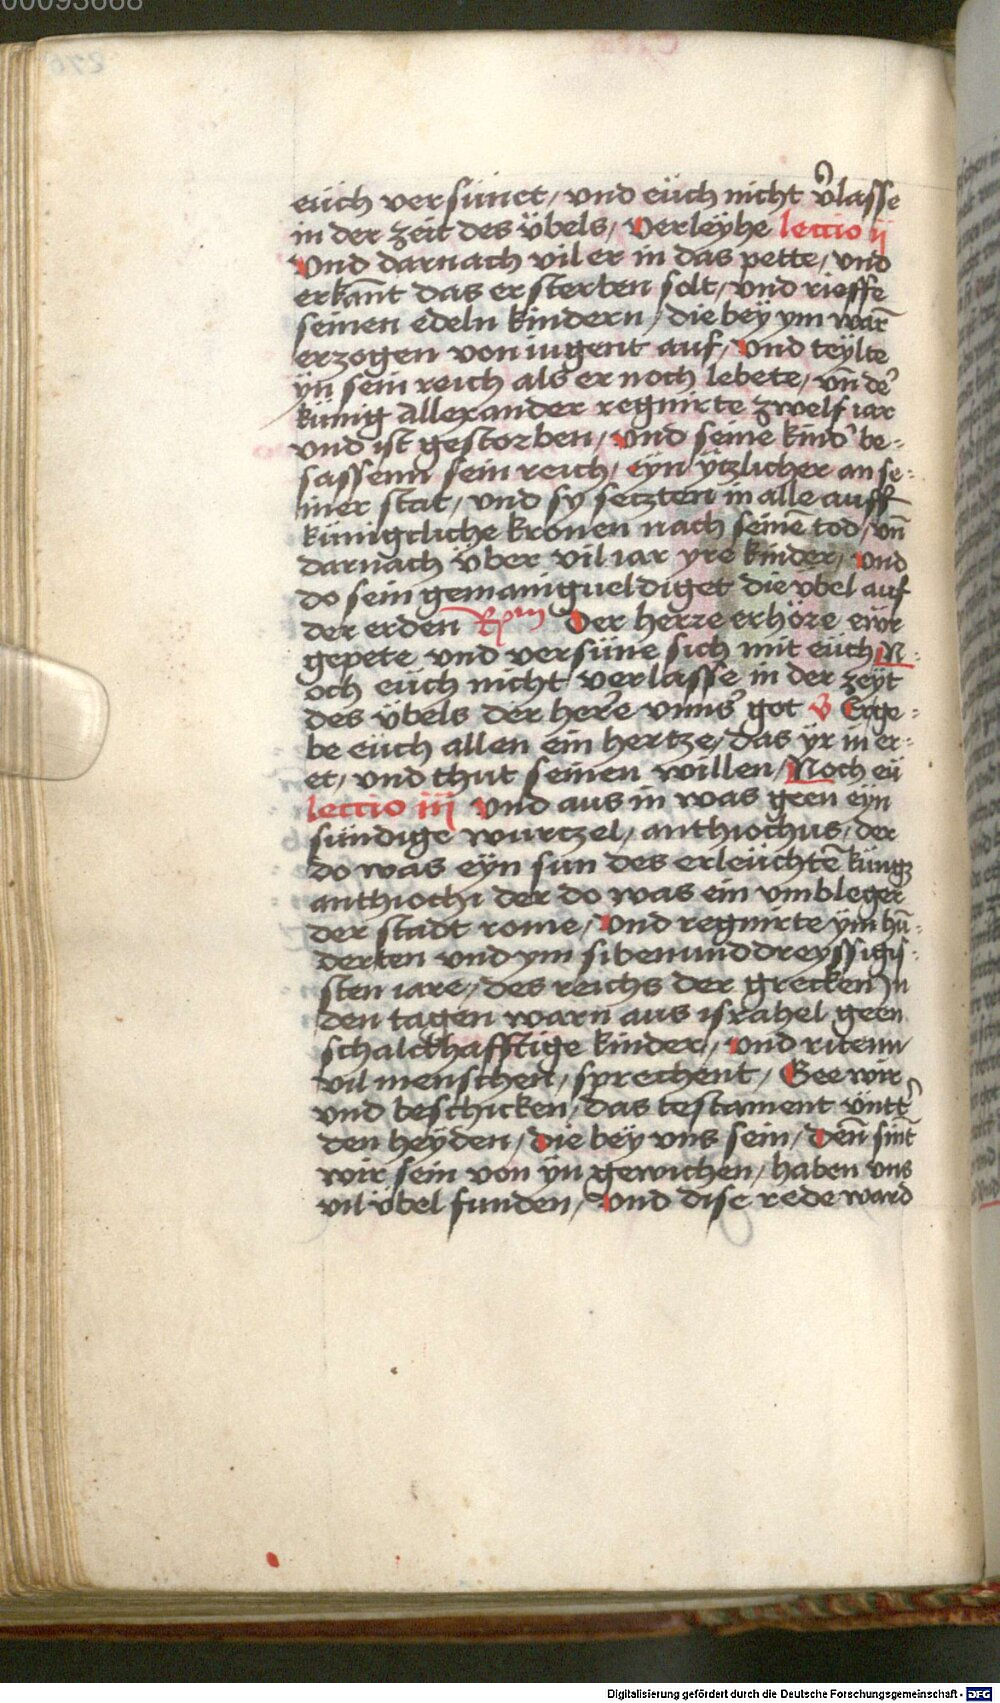 00093668
eüch versünet / vnd eüch nicht v̉lasse
in der zeit des übels / Verleyhe lectio ij
Vnd darnach vil er in das pette / vnd
erkant̄ das er sterben solt / vnd rieffe
seinen edeln kindern / die bey ym war̄
erzogen von iugent auf / Vnd teylte
yn sein reich als er noch lebete / vn̄ de᾽
künig Allexander regnirte zwelf iar
vnd ist gestorben / Vnd seine kind᾽ be-
sassenn sein reich / eyn ytzlicher an se-
iner stat / vnd sy setzten in alle auff
künigcliche kronen nach seinē tod / vn̄
darnach über vil iar yre kinder / Vnd
do sein gemanigueldiget die übel auf
der erden R̄m Der herre erhöre ewr
gepete vnd versüne sich mit eüch N-
och eüch nicht verlasse in der zeyt
des übels der here vnns᾽ got V Erge-
be eüch allen ein hertze / das yr in er-
et / vnd thut seinen willen / Noch eü
lectio iij Vnd aus in was geen eyn
sündige wurtzel / anthiochus / der
do was eyn sun des erleüchtē küngs
anthiochi der do was ein vmbleger
der stadt rome / Vnd regnirte ym hū-
derten vnd ym sibenunddreyssigi-
sten iare / des reichs der grecken In
den tagen warn aus israhel geen
schalckhafftige kinder / Vnd ritenn
vil menschen / sprechent / Gee wir
vnd beschicken / das testament üntt᾽
den heyden / Die bey vns sein / Den̄ sint̄
wir sein von yn gewichen / haben vns
vil übel funden / Vnd dise rede ward
Digitalisierung gefördert durch die Deutsche Forschungsgemeinschaft - DFG